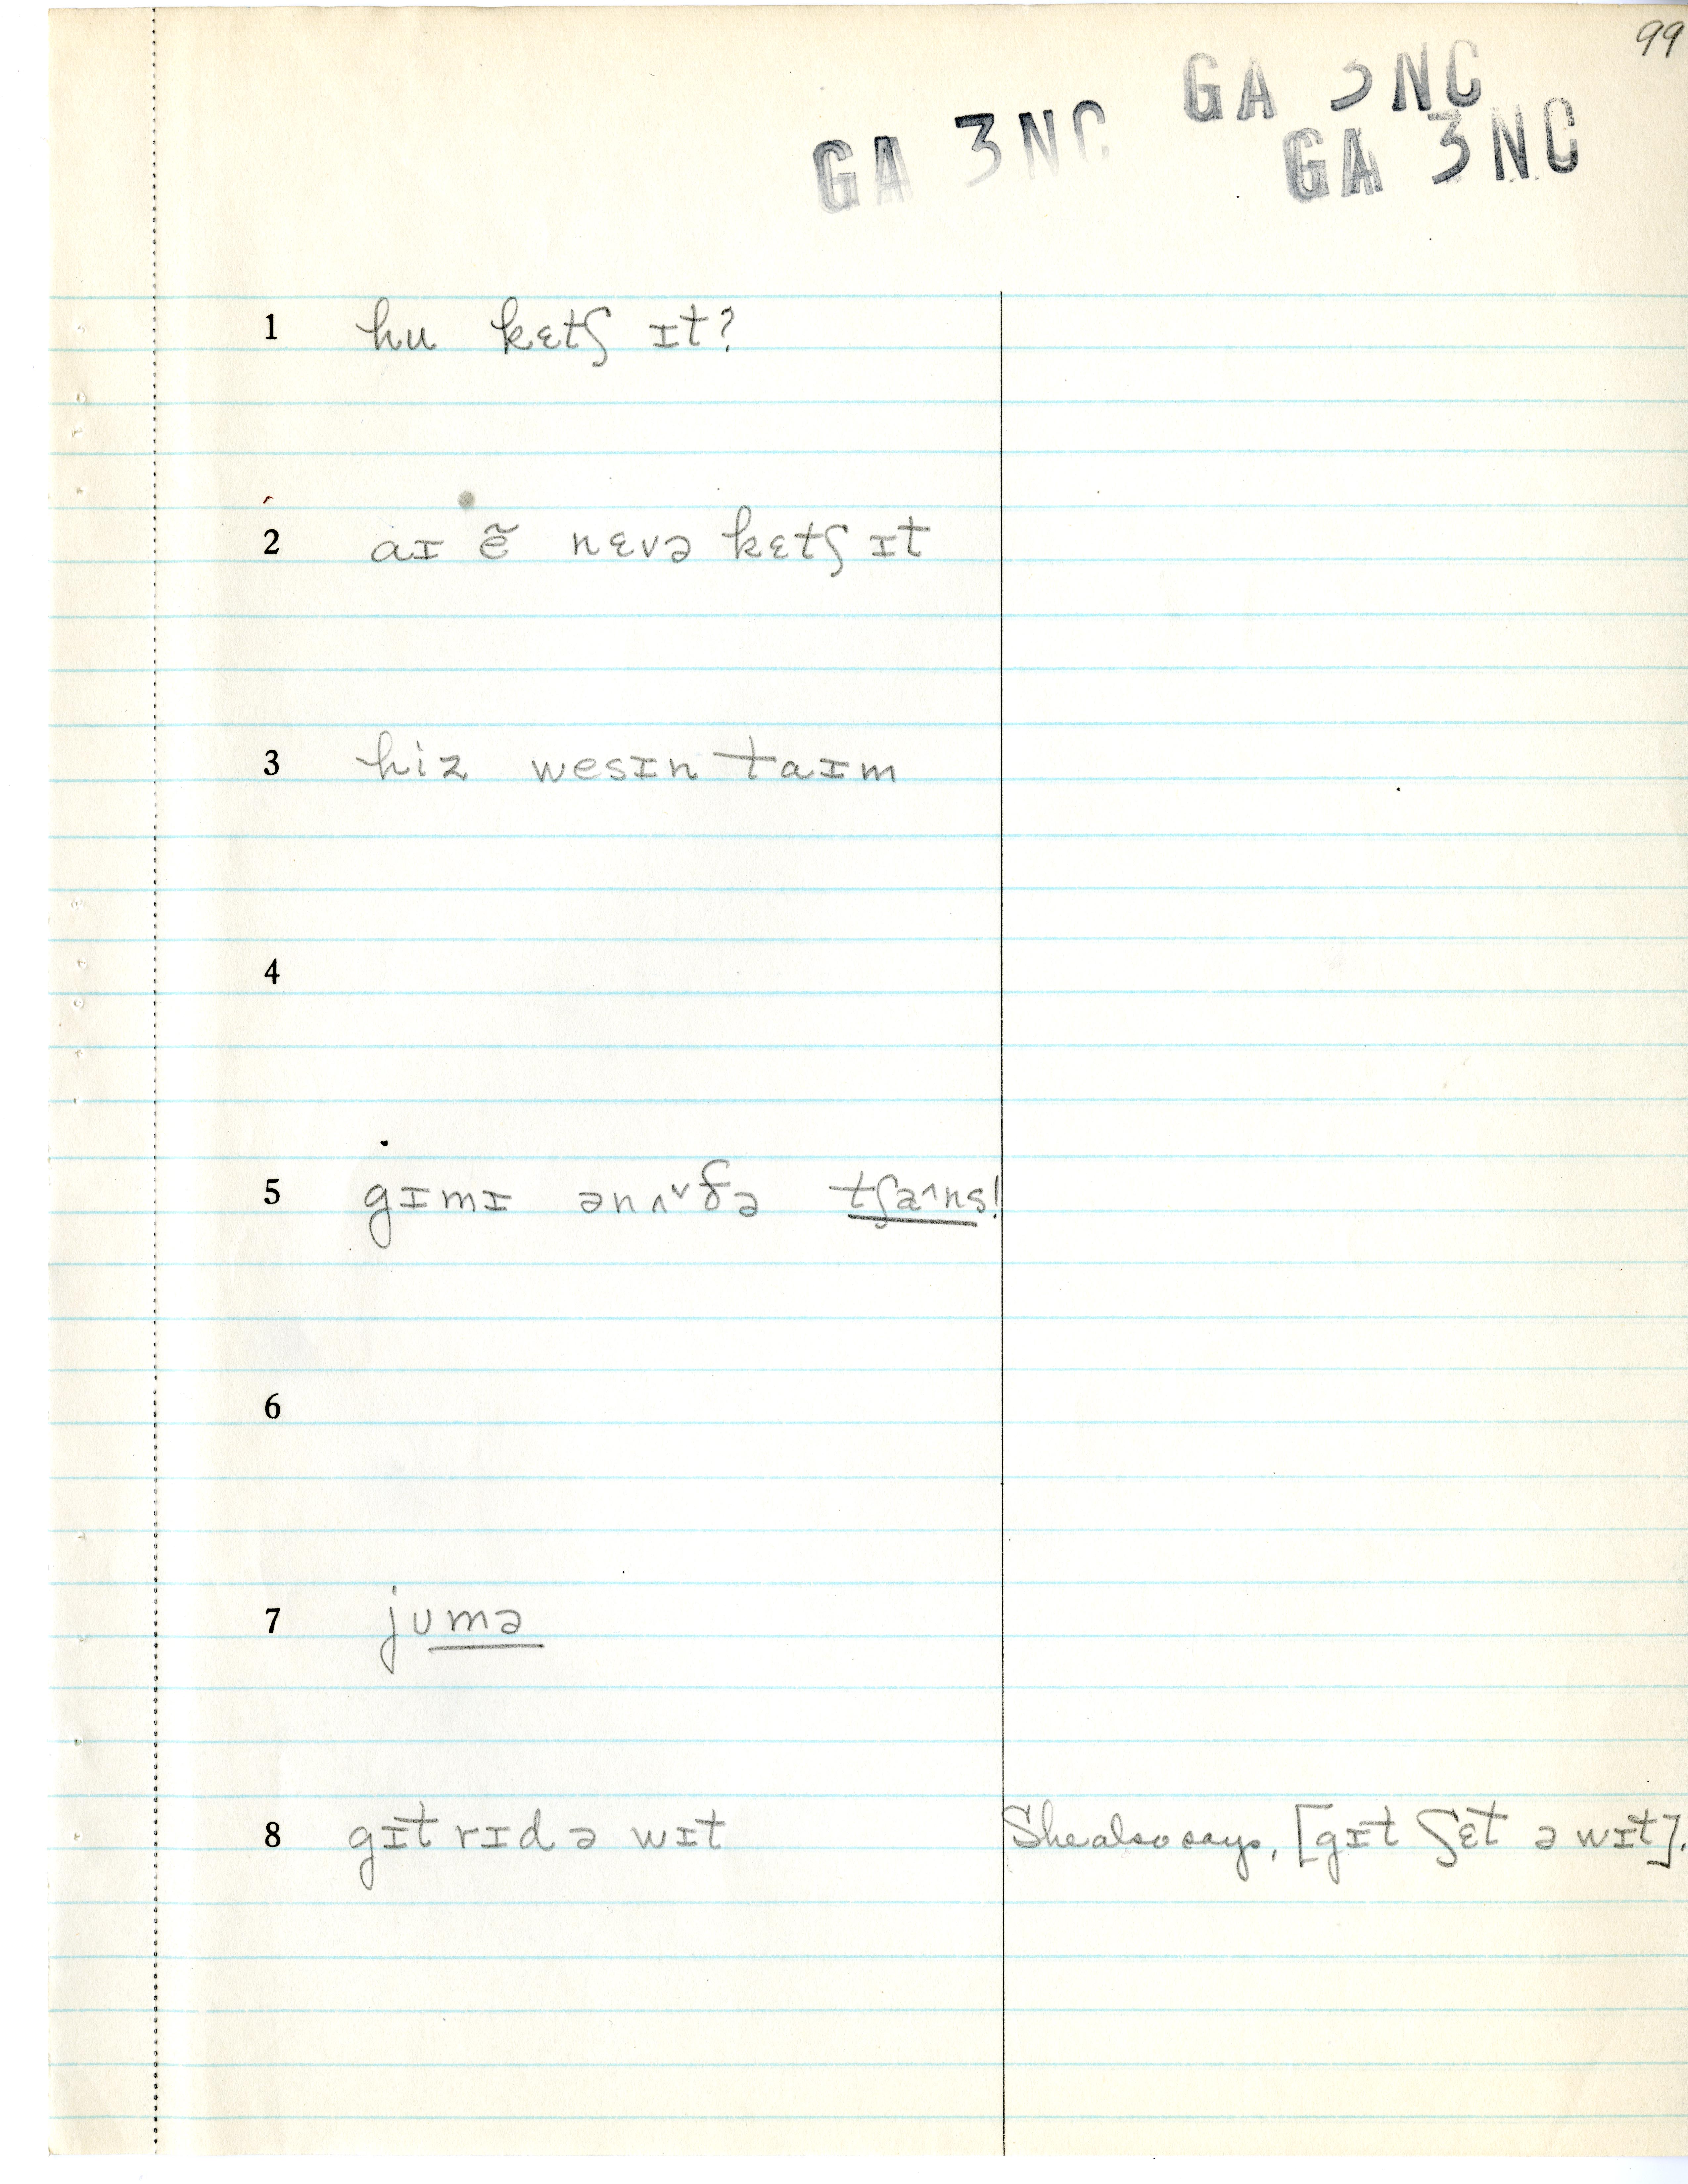 99
GA 3NC
GA 3NC
GA 3NC
1 hu kɛtʃ ɪt?
2 aɪ ẽ nɛvə kɛtʃ ɪt
3 hiz wesɪn taɪm
4
5 gɪmɪ ənʌ˅ðə tʃæ^ns!
6
7 jʊmə
8 gɪt rɪd ə wɪt She also says, [gɪt ʃɛt ə wɪt].